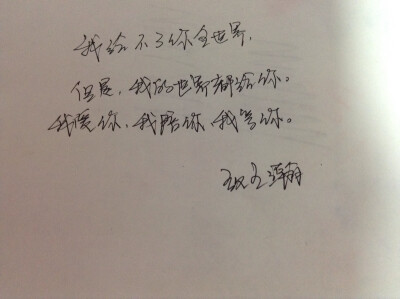 我给不了你全世界.
但是，我的世界都给你。
我爱你，我陪你，我等你。